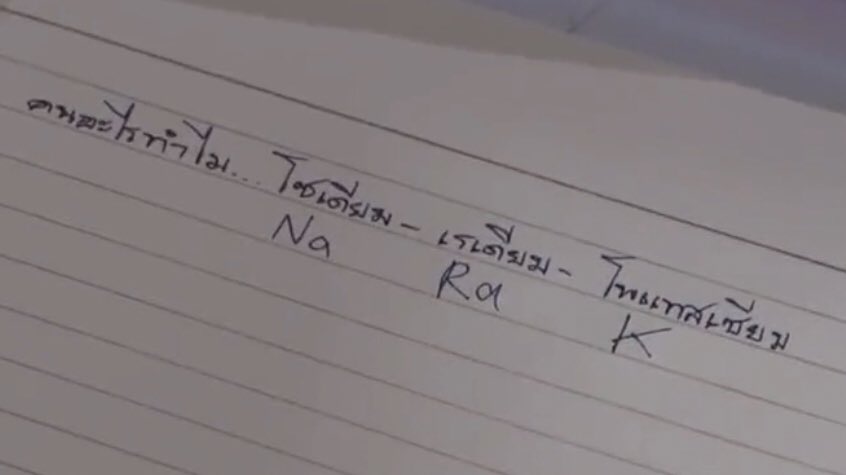 คนอะไรทำไม... โซเดียม - เรเดียม - โพแทสเซียม
Na Ra K